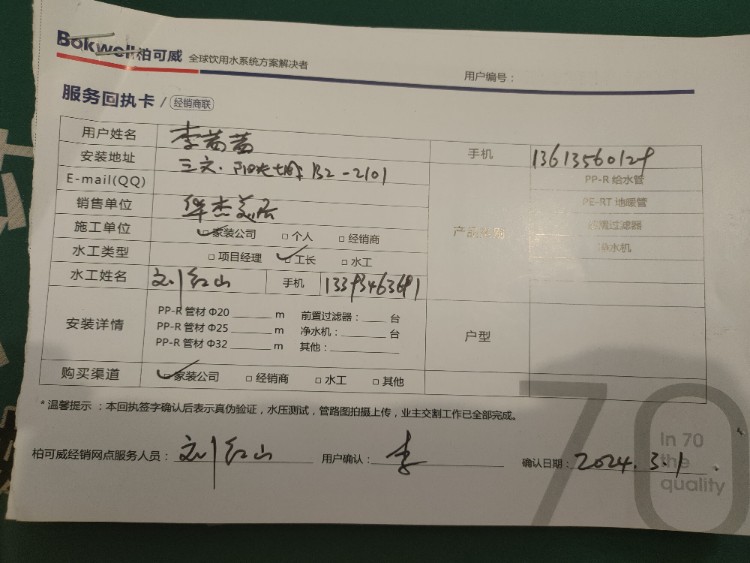 Bokwell柏可威 全球饮用水系统方案解决者
用户编号：
服务回执卡 / 经销商联
用户姓名 李 手机 13613560129
安装地址 三 阳光 B2-2101
E-mail(QQ)
PP-R 给水管
PE-RT 地暖管
前置过滤器
净水机
产品类别
销售单位 华杰
施工单位 家装公司 □个人 □经销商
水工类型 □项目经理 工长 □水工
水工姓名 刘红山 手机 13393463691
安装详情 PP-R 管材 Φ20 m 前置过滤器： 台 户型
PP-R 管材 Φ25 m 净水机： 台
PP-R 管材 Φ32 m 其他：
购买渠道 家装公司 □经销商 □水工 □其他
*温馨提示：本回执签字确认后表示真伪验证，水压测试，管路图拍摄上传，业主交割工作已全部完成。
柏可威经销网点服务人员：刘红山 用户确认：李 确认日期：2024.3.1
70
In 70
the
quality